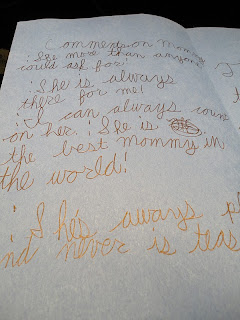 Comments on Mommy
¡ She more than anyone
could ask for!
¡ She is always
there for me!
¡ I can always count
on her. ¡ She is
the best mommy in
the world!
¡ She's aways pl
nd never is teas